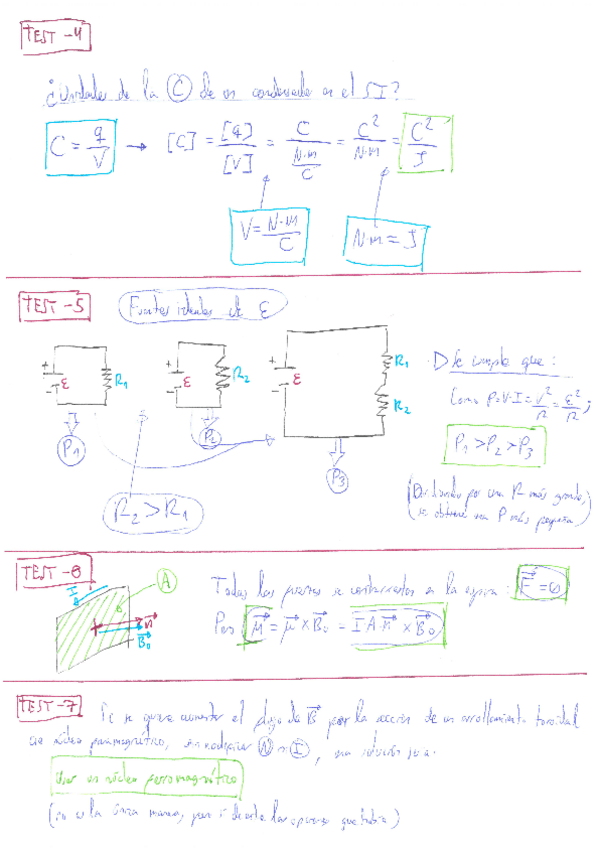 TEST-4
¿Unidades de la C de un condensador en el SI?
C = q/V → [C] = [q]/[V] = C/(N·m/C) = C²/N·m = C²/J
V = N·m/C
N·m = J
TEST-5
Fuentes ideales de ε
+ - ε R₁
+ - ε R₂
+ - ε R₁ R₂
P₁
P₂
P₃
R₂ > R₁
Se cumple que:
Como P=V·I = V²/R = ε²/R ;
P₁ > P₂ > P₃
(Dividiendo por una R más grande,
se obtiene una P más pequeña)
TEST-6
I
A
n
B₀
Todas las fuerzas se contrarrestan en la espira: F = 0
Pero M = μ × B₀ = I A n × B₀
TEST-7
Si se quiere aumentar el flujo de B por la acción de un arrollamiento toroidal
de núcleo paramagnético, sin modificar N ni I, una solución
Usar un núcleo ferromagnético
(no es la única manera, pero sí de las opciones que había)